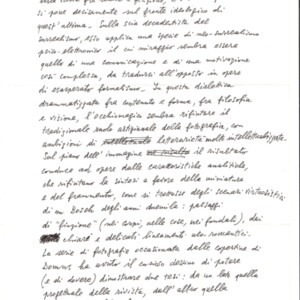 si pone decisamente sul fronte ideologico di
quest'ultima. Sulla scia decadentista del
surrealismo, esso applica una specie di neo-surrealismo
psico-elettronico il cui miraggio sembra essere
quello di una comunicazione e di una motivazione
così complessa, da tradursi all'opposto in opere
di esasperato formalismo. In questa dialettica
drammatizzata fra contenuto e forma, fra filosofia
e visione, l'occhiomagico sembra rifiutare il
tradizionale ruolo artigianale della fotografia, con
ambizioni di letterarietà molto intellettualizzata.
Sul piano dell'immagine il risultato
conduce ad opere dalle caratteristiche analitiche,
che rifiutano la sintesi a favore della miniatura
e del frammento, come si trattasse degli scenari
di un Bosch degli anni duemila: paesaggi
di "finzione" (nei corpi, nelle cose, nei fondali), dai
chiari e delicati lineamenti neo-romantici.
La serie di fotografie occasionata dalle copertine di
Domus ha avuto il curioso destino di potere
(e di dovere) dimostrare due tesi: da un lato quella
progettuale della rivista, dall'altro quella